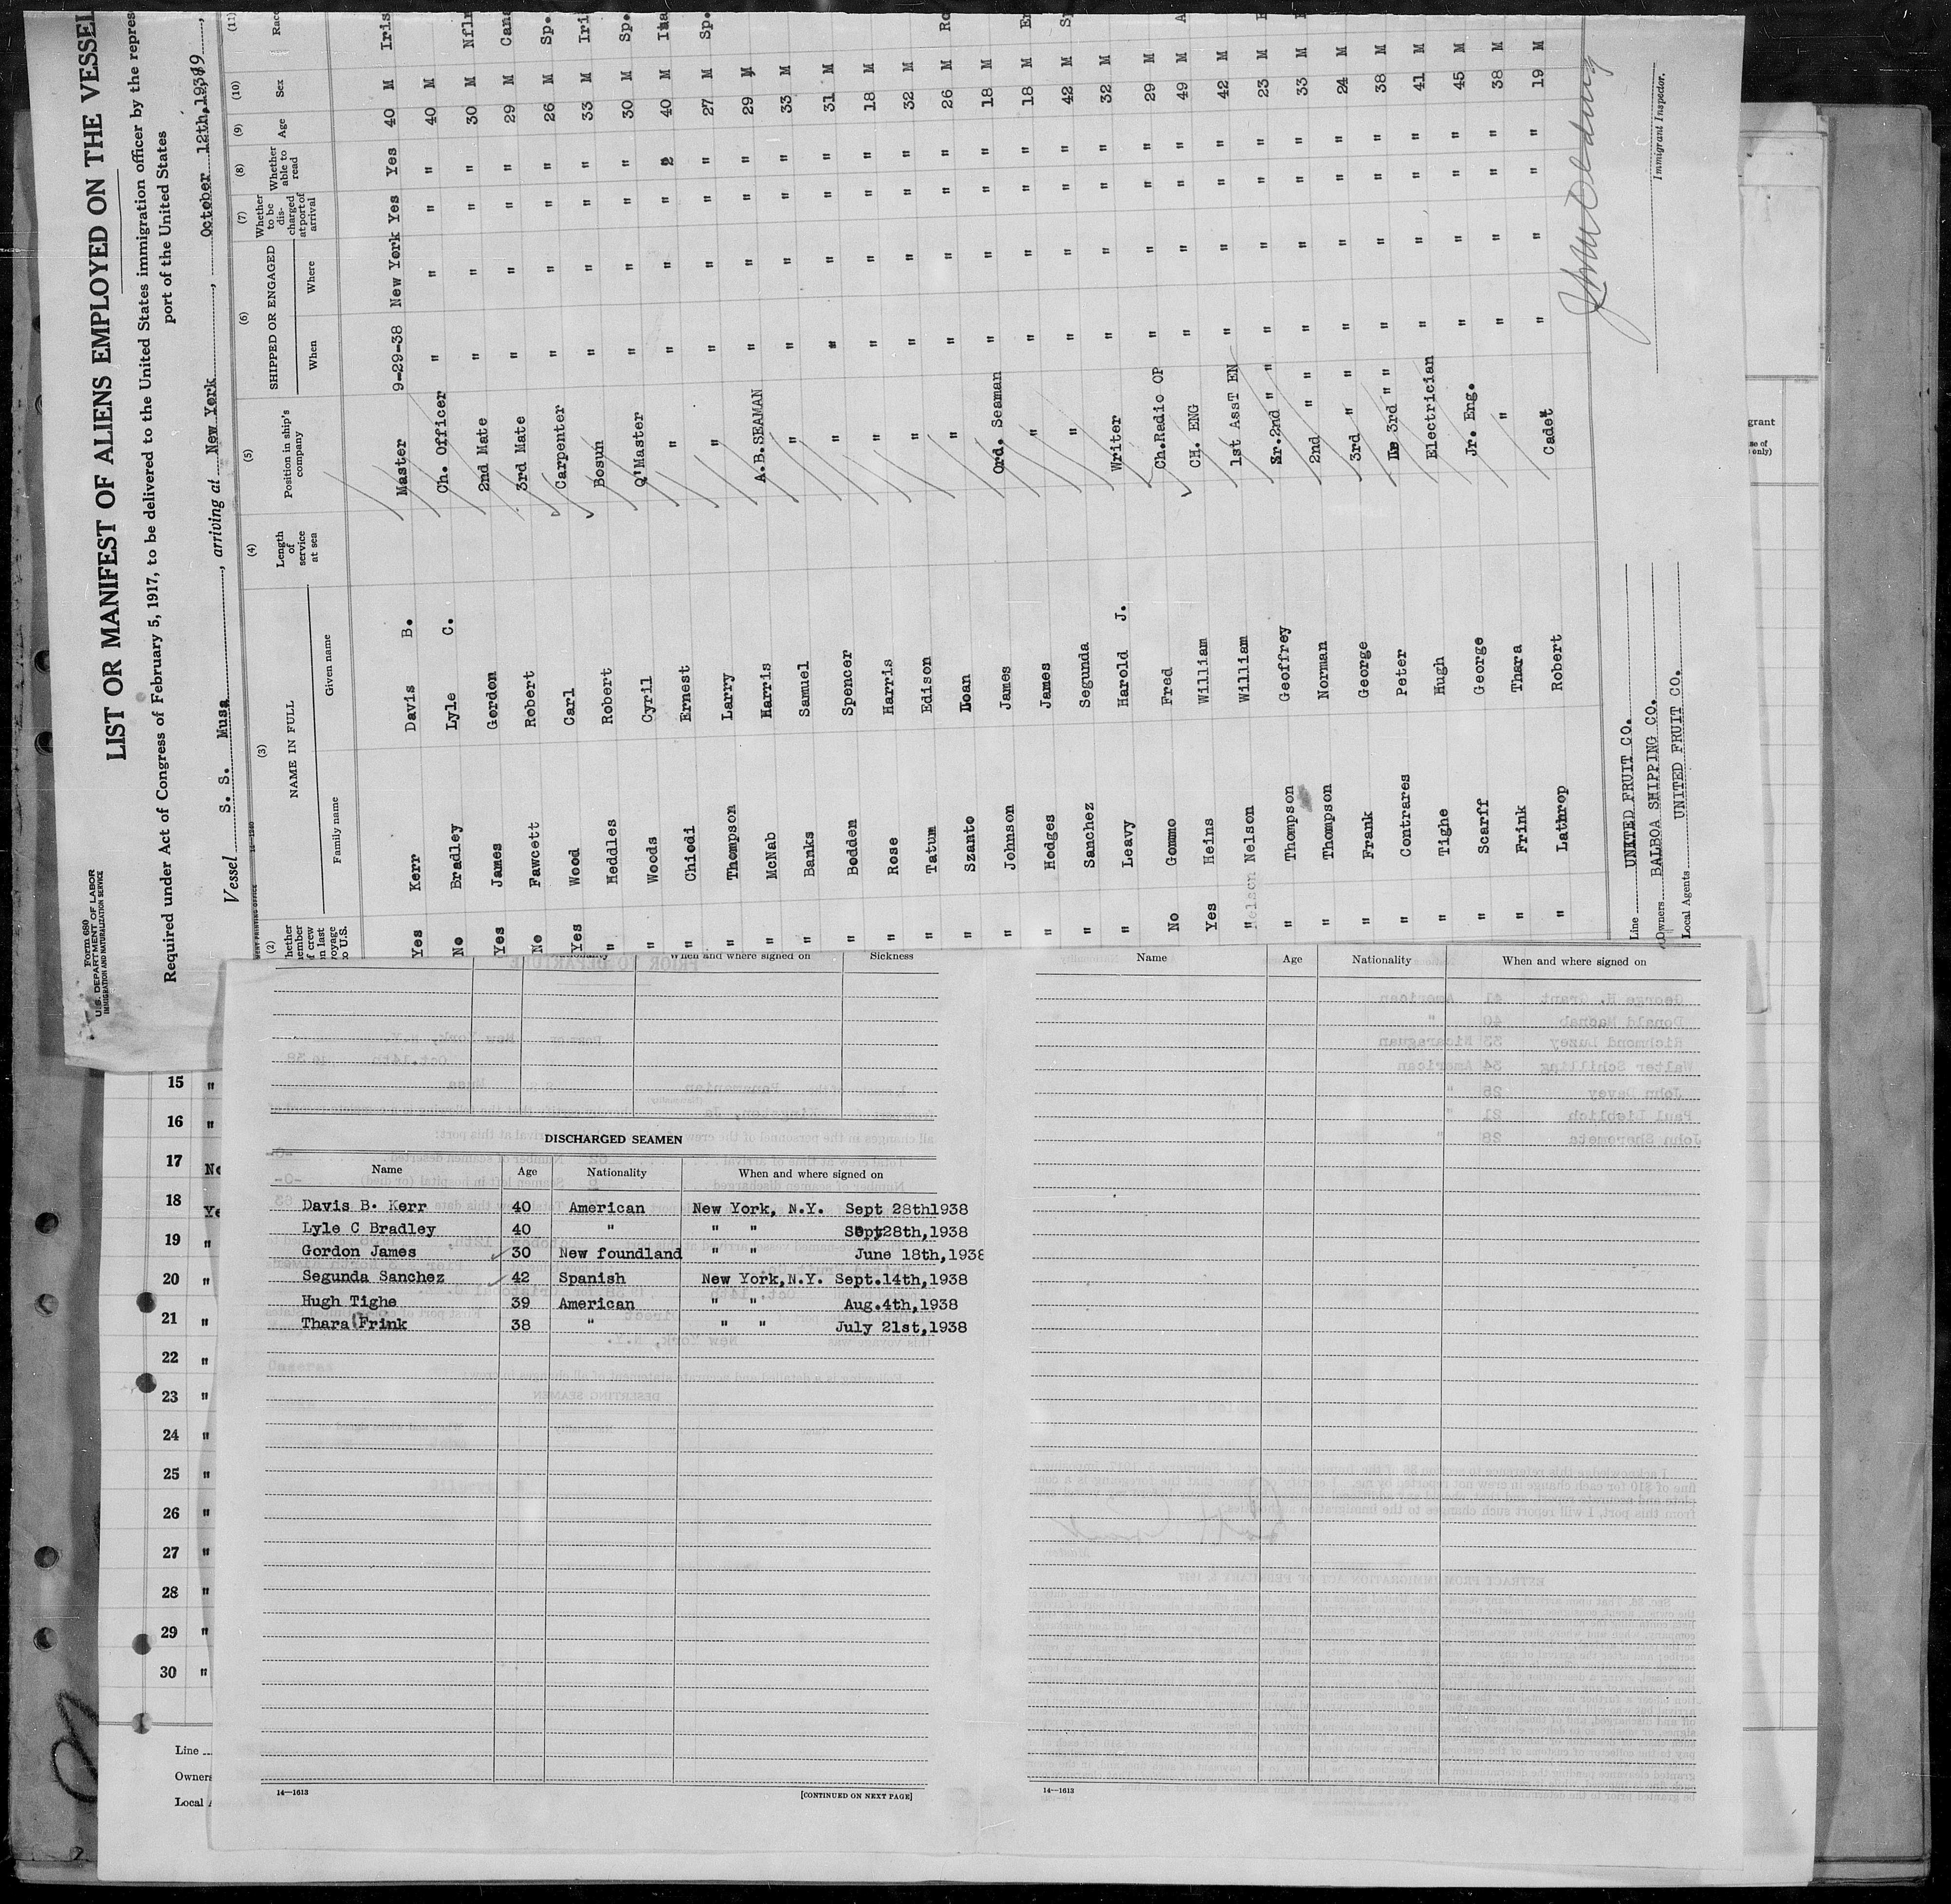 Form 680
U.S. DEPARTMENT OF LABOR
IMMIGRATION AND NATURALIZATION SERVICE
LIST OR MANIFEST OF ALIENS EMPLOYED ON THE VESSEL
Required under Act of Congress of February 5, 1917, to be delivered to the United States immigration officer by the repres
port of the United States
Vessel S. S. Musa, arriving at New York, October 12th,
(2) (3) (4) (5) (6) (7) (8) (9) (10) (11)
NAME IN FULL
Family name Given name
Length of service at sea
Position in ship's company
SHIPPED OR ENGAGED
When Where
Whether to be discharged at port of arrival
Whether able to read
Age Sex Race
Yes Kerr Davis B. Master 9-29-38 New York Yes Yes 40 M Iris
No Bradley Lyle C. Ch. Officer " " " " 40 M
Yes James Gordon 2nd Mate " " " " 30 M Nfl
No Fawcett Robert 3rd Mate " " " " 29 M Cana
Yes Wood Carl Carpenter " " " " 26 M Sp.
" Heddles Robert Bosun " " " " 33 M Iri
" Woods Cyril Q'Master " " " " 30 M Sp.
" Chiodi Ernest " " " " 40 M
" Thompson Larry " " " " " 27 M Sp.
" McNab Harris A.B.SEAMAN " " " " 29 M
" Banks Samuel " " " " " 33 M
" Bodden Spencer " " " " " 31 M
" Rose Harris " " " " " 18 M
" Tatum Edison " " " " " 32 M
" Szanto Loan " " " " " 26 M Ro
" Johnson James Ord. Seaman " " " " 18 M
" Hodges James " " " " " 18 M
" Sanchez Segunda " " " " " 42 M
" Leavy Harold J. Writer " " " " 32 M
No Gommo Fred Ch.Radio OP " " " " 29 M
Yes Heins William CH. ENG " " " " 49 M A
" Nelson William 1st AssT EN " " " " 42 M
" Thompson Geoffrey Sr.2nd " " " " " 23 M
" Thompson Norman 2nd " " " " " " 33 M
" Frank George 3rd " " " " " " 24 M
" Contrares Peter 3rd " " " " " " 38 M
" Tighe Hugh Electrician " " " " 41 M
" Scarff George Jr. Eng. " " " " 45 M
" Frink Thara " " " " " 38 M
" Lathrop Robert Cadet " " " " 19 M
Line UNITED FRUIT CO.
Owners BALBOA SHIPPING CO.
Local Agents UNITED FRUIT CO.
Immigrant Inspector.
When and where signed on Sickness
DISCHARGED SEAMEN
Name Age Nationality When and where signed on
Davis B. Kerr 40 American New York, N.Y. Sept 28th1938
Lyle C Bradley 40 " " " Sept28th,1938
Gordon James 30 New foundland " " June 18th,1938
Segunda Sanchez 42 Spanish New York,N.Y. Sept.14th,1938
Hugh Tighe 39 American " " Aug.4th,1938
Thara Frink 38 " " " July 21st,1938
14—1613 [CONTINUED ON NEXT PAGE]
Name Age Nationality When and where signed on
14—1613
15 "
16 "
17 No
18 Ye
19 "
20 "
21 "
22 "
23 "
24 "
25 "
26 "
27 "
28 "
29 "
30 "
Line
Owners
Local A
grant
only)